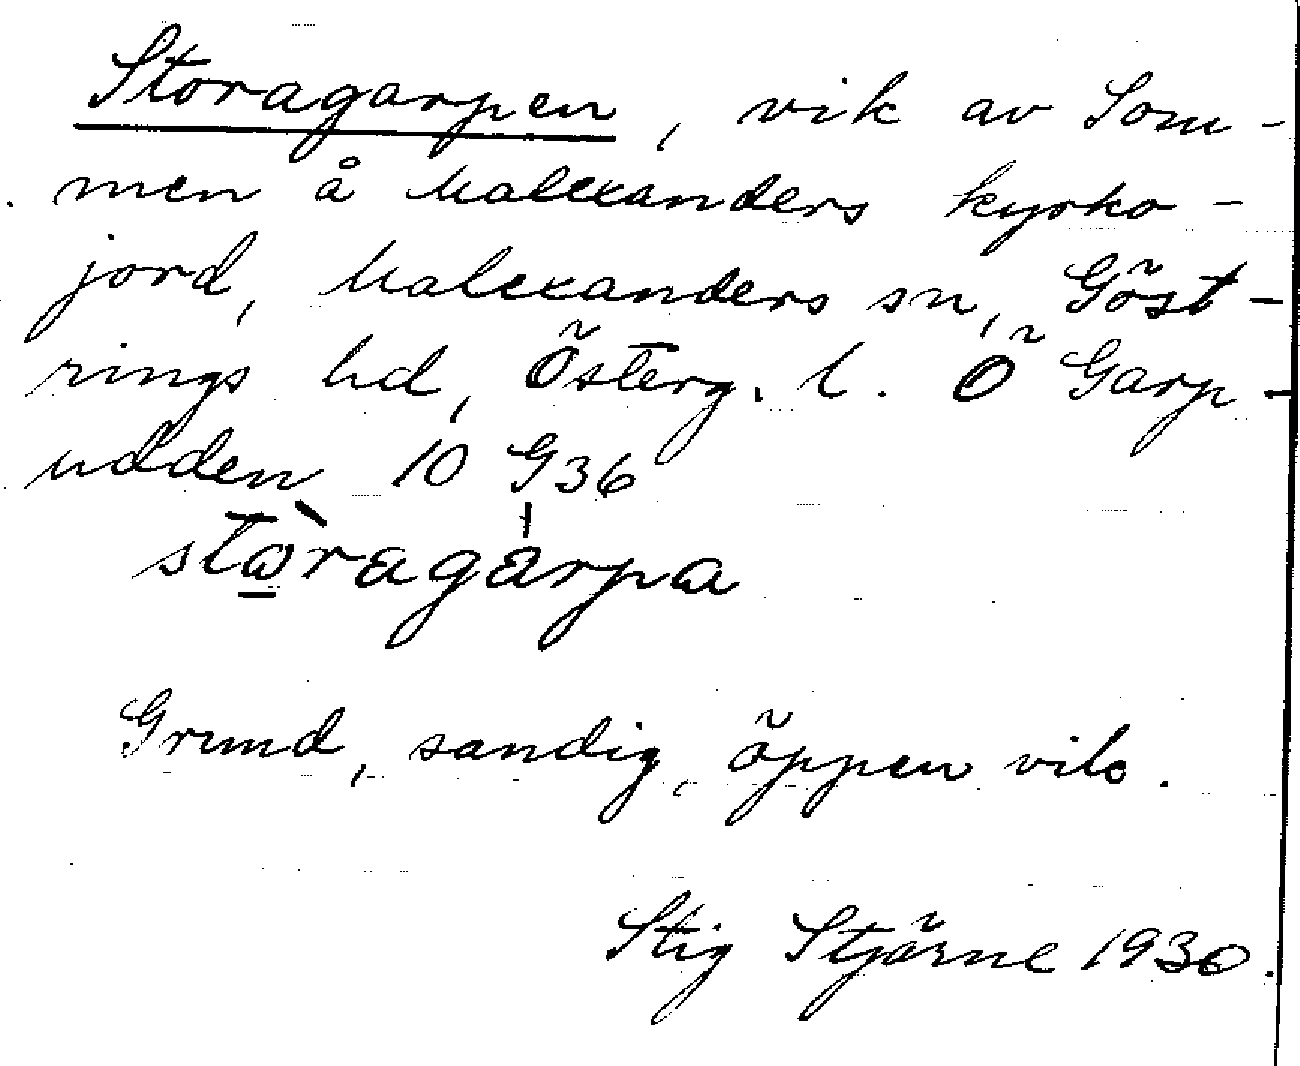 Storagarpen, vik av Som-
men å Malexanders kyrko-
jord, Malexanders sn, Göst-
rings hd, Österg. l. Ö Garp-
udden 10 G36
stò̲ragárpa
Grund, sandig, öppen vik.
Stig Stjärne 1930.